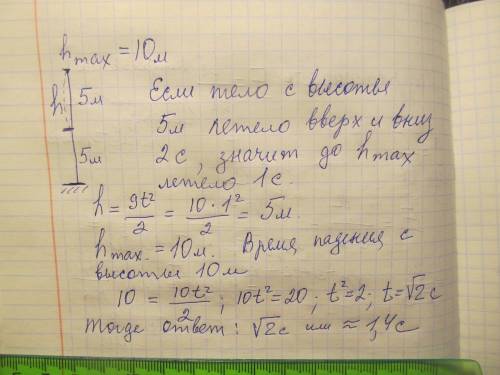 hmax = 10м
h
5м
5м
Если тело с высоты
5м летело вверх и вниз
2с, значит до hmax
летело 1с.
h = gt²/2 = 10·1²/2 = 5м.
hmax. = 10м. Время падения с
высоты 10м
10 = 10t²/2; 10t²=20; t²=2; t=√2с
Тогда ответ: √2с или ≈ 1,4с